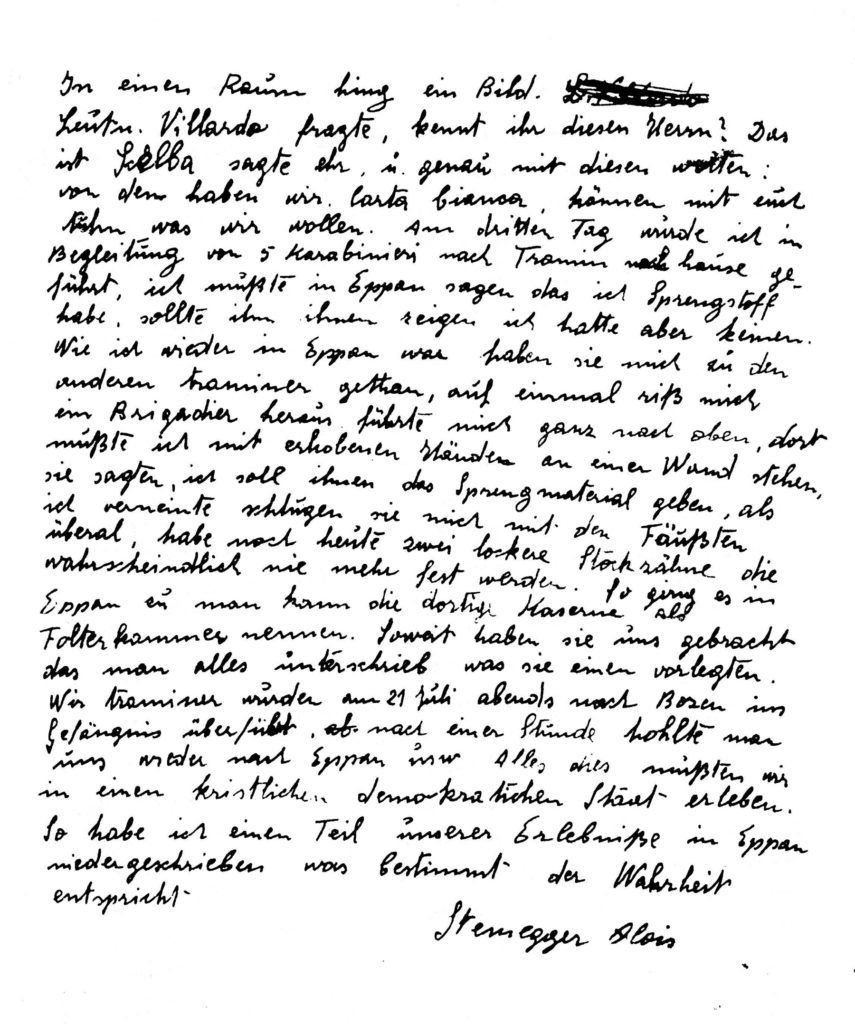 In einen Raum hing ein Bild.
Leutn. Villardo fragte, kennt ihr diesen Herrn? Das
ist Schelba sagte ehr, u. genau mit diesen worten:
von dem haben wir Carta bianca, können mit euch
tuhn was wir wollen. Am dritten Tag wurde ich in
Begleitung von 5 Karabinieri nach Tramin nach hause ge-
führt, ich mußte in Eppan sagen das ich Sprengstoff
habe, sollte ihn ihnen zeigen ich hatte aber keinen.
Wie ich wieder in Eppan war haben sie mich zu den
anderen traminer gethan, auf einmal riß mich
ein Brigadier heraus führte mich ganz nach oben, dort
mußte ich mit erhobenen Händen an einer Wand stehen,
sie sagten, ich soll ihnen das Sprengmaterial geben, als
ich verneinte schlugen sie mich mit den Fäußten
überal, habe noch heute zwei lockere Stockzähne die
wahrscheindlich nie mehr fest werden. So ging es in
Eppan zu man kann die dortige Kaserne als
Folterkammer nennen. Soweit haben sie uns gebracht
das man alles unterschrieb was sie einen vorlegten.
Wir traminer wurden am 21 Juli abends nach Bozen ins
Gefängnis überführt, ab nach einer Stunde hohlte man
uns wieder nach Eppan usw Alles dies mußten wir
in einen kristlichen demokratichen Staat erleben.
So habe ich einen Teil unserer Erlebniße in Eppan
niedergeschrieben was bestimmt der Wahrheit
entspricht
Steinegger Alois